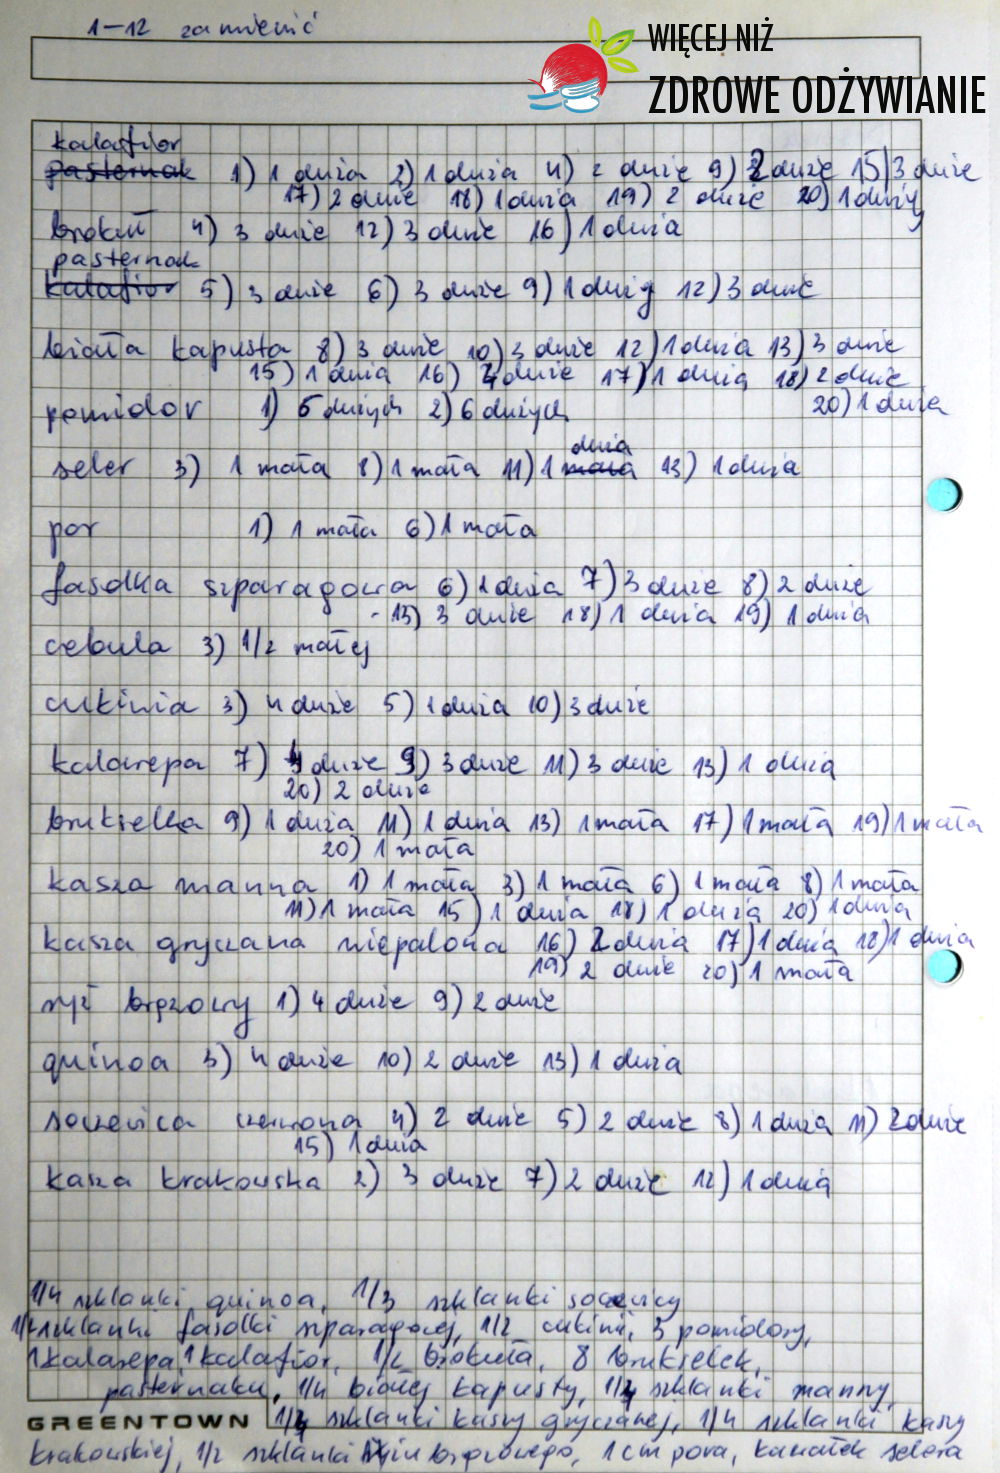 1–12 zamienić
WIĘCEJ NIŻ
ZDROWE ODŻYWIANIE
kalafior
pasternak 1) 1 duża 2) 1 duża 4) 2 duże 9) 2 duże 15) 3 duże
17) 2 duże 18) 1 duża 19) 2 duże 20) 1 duży
brokuł 4) 3 duże 12) 3 duże 16) 1 duża
pasternak
kalafior 5) 3 duże 6) 3 duże 9) 1 duży 12) 3 duże
biała kapusta 8) 3 duże 10) 3 duże 12) 1 duża 13) 3 duże
15) 1 duża 16) duże 17) 1 duża 18) 2 duże
pomidor 1) 5 dużych 2) 6 dużych 20) 1 duża
duża
seler 3) 1 mała 8) 1 mała 11) 1 mała 13) 1 duża
por 1) 1 mała 6) 1 mała
fasolka szparagowa 6) 1 duża 7) 3 duże 8) 2 duże
13) 3 duże 18) 1 duża 19) 1 duża
cebula 3) 1/2 małej
cukinia 3) 4 duże 5) 1 duża 10) 3 duże
kalarepa 7) 4 duże 9) 3 duże 11) 3 duże 13) 1 duża
20) 2 duże
brukselka 9) 1 duża 11) 1 duża 13) 1 mała 17) 1 mała 19) 1 mała
20) 1 mała
kasza manna 1) 1 mała 3) 1 mała 6) 1 mała 8) 1 mała
11) 1 mała 15) 1 duża 18) 1 duża 20) 1 duża
kasza gryczana niepalona 16) 2 duża 17) 1 duża 18) 1 duża
19) 2 duże 20) 1 mała
ryż brązowy 1) 4 duże 9) 2 duże
quinoa 3) 4 duże 10) 2 duże 13) 1 duża
soczewica czerwona 4) 2 duże 5) 2 duże 8) 1 duża 11) 2 duże
15) 1 duża
kasza krakowska 2) 3 duże 7) 2 duże 12) 1 duża
1/4 szklanki quinoa, 1/3 szklanki soczewicy
szklanki fasolki szparagowej, 1/2 cukini, 3 pomidory,
1 kalarepa, 1 kalafior, 1/2 brokuła, 8 brukselek,
pasternaku, 1/4 białej kapusty, 1/4 szklanki manny,
GREENTOWN 1/4 szklanki kaszy gryczanej, 1/4 szklanki kaszy
krakowskiej, 1/2 szklanki brązowego, 1 cm pora, kawałek selera